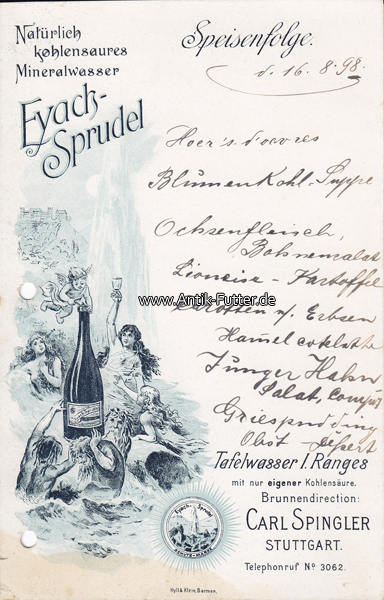 Natürlich
kohlensaures
Mineralwasser
Eyach-
Sprudel
Speisenfolge.
d. 16. 8. 98.
Hoer's d'oevres
Blumenkohl-Suppe
Ochsenfleisch,
Bohnensalat
Kartoffel
Karotten u. Erbsen
Hamelcotelette
Junger Hahn
Salat, Compot
Griespudding
Obst - Desert
www.Antik-Futter.de
Tafelwasser I. Ranges
mit nur eigener Kohlensäure.
Brunnendirection:
CARL SPINGLER
STUTTGART.
Telephonruf No 3062.
Eyach-Sprudel
SCHUTZ-MARKE
Hyll & Klein, Barmen.